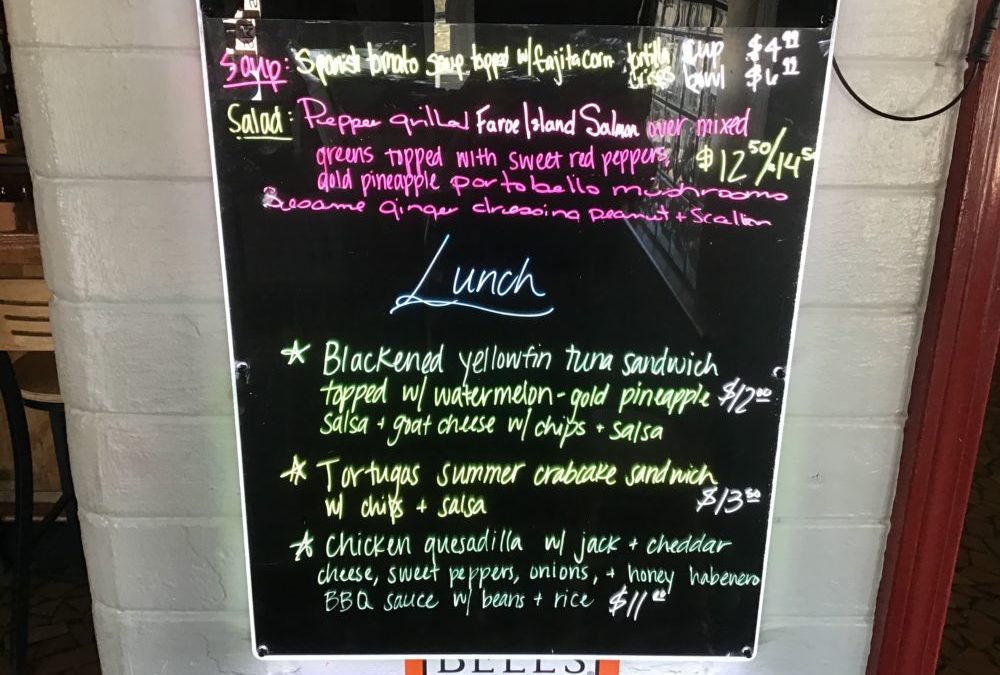 Soup: Spanish tomato soup topped w/ fajita corn tortilla cup $4.99
crisps bowl $6.99
Salad: Pepper grilled Faroe Island Salmon over mixed
greens topped with sweet red peppers, $12.50/14.50
gold pineapple portobello mushrooms
Sesame ginger dressing peanut + Scallion
Lunch
* Blackened yellowfin tuna sandwich
topped w/ watermelon-gold pineapple $12.00
salsa + goat cheese w/ chips + salsa
* Tortugas summer crabcake sandwich
w/ chips + salsa $13.50
* Chicken quesadilla w/ jack + cheddar
cheese, sweet peppers, onions, + honey habenero
BBQ sauce w/ beans + rice $11.00
BELL'S